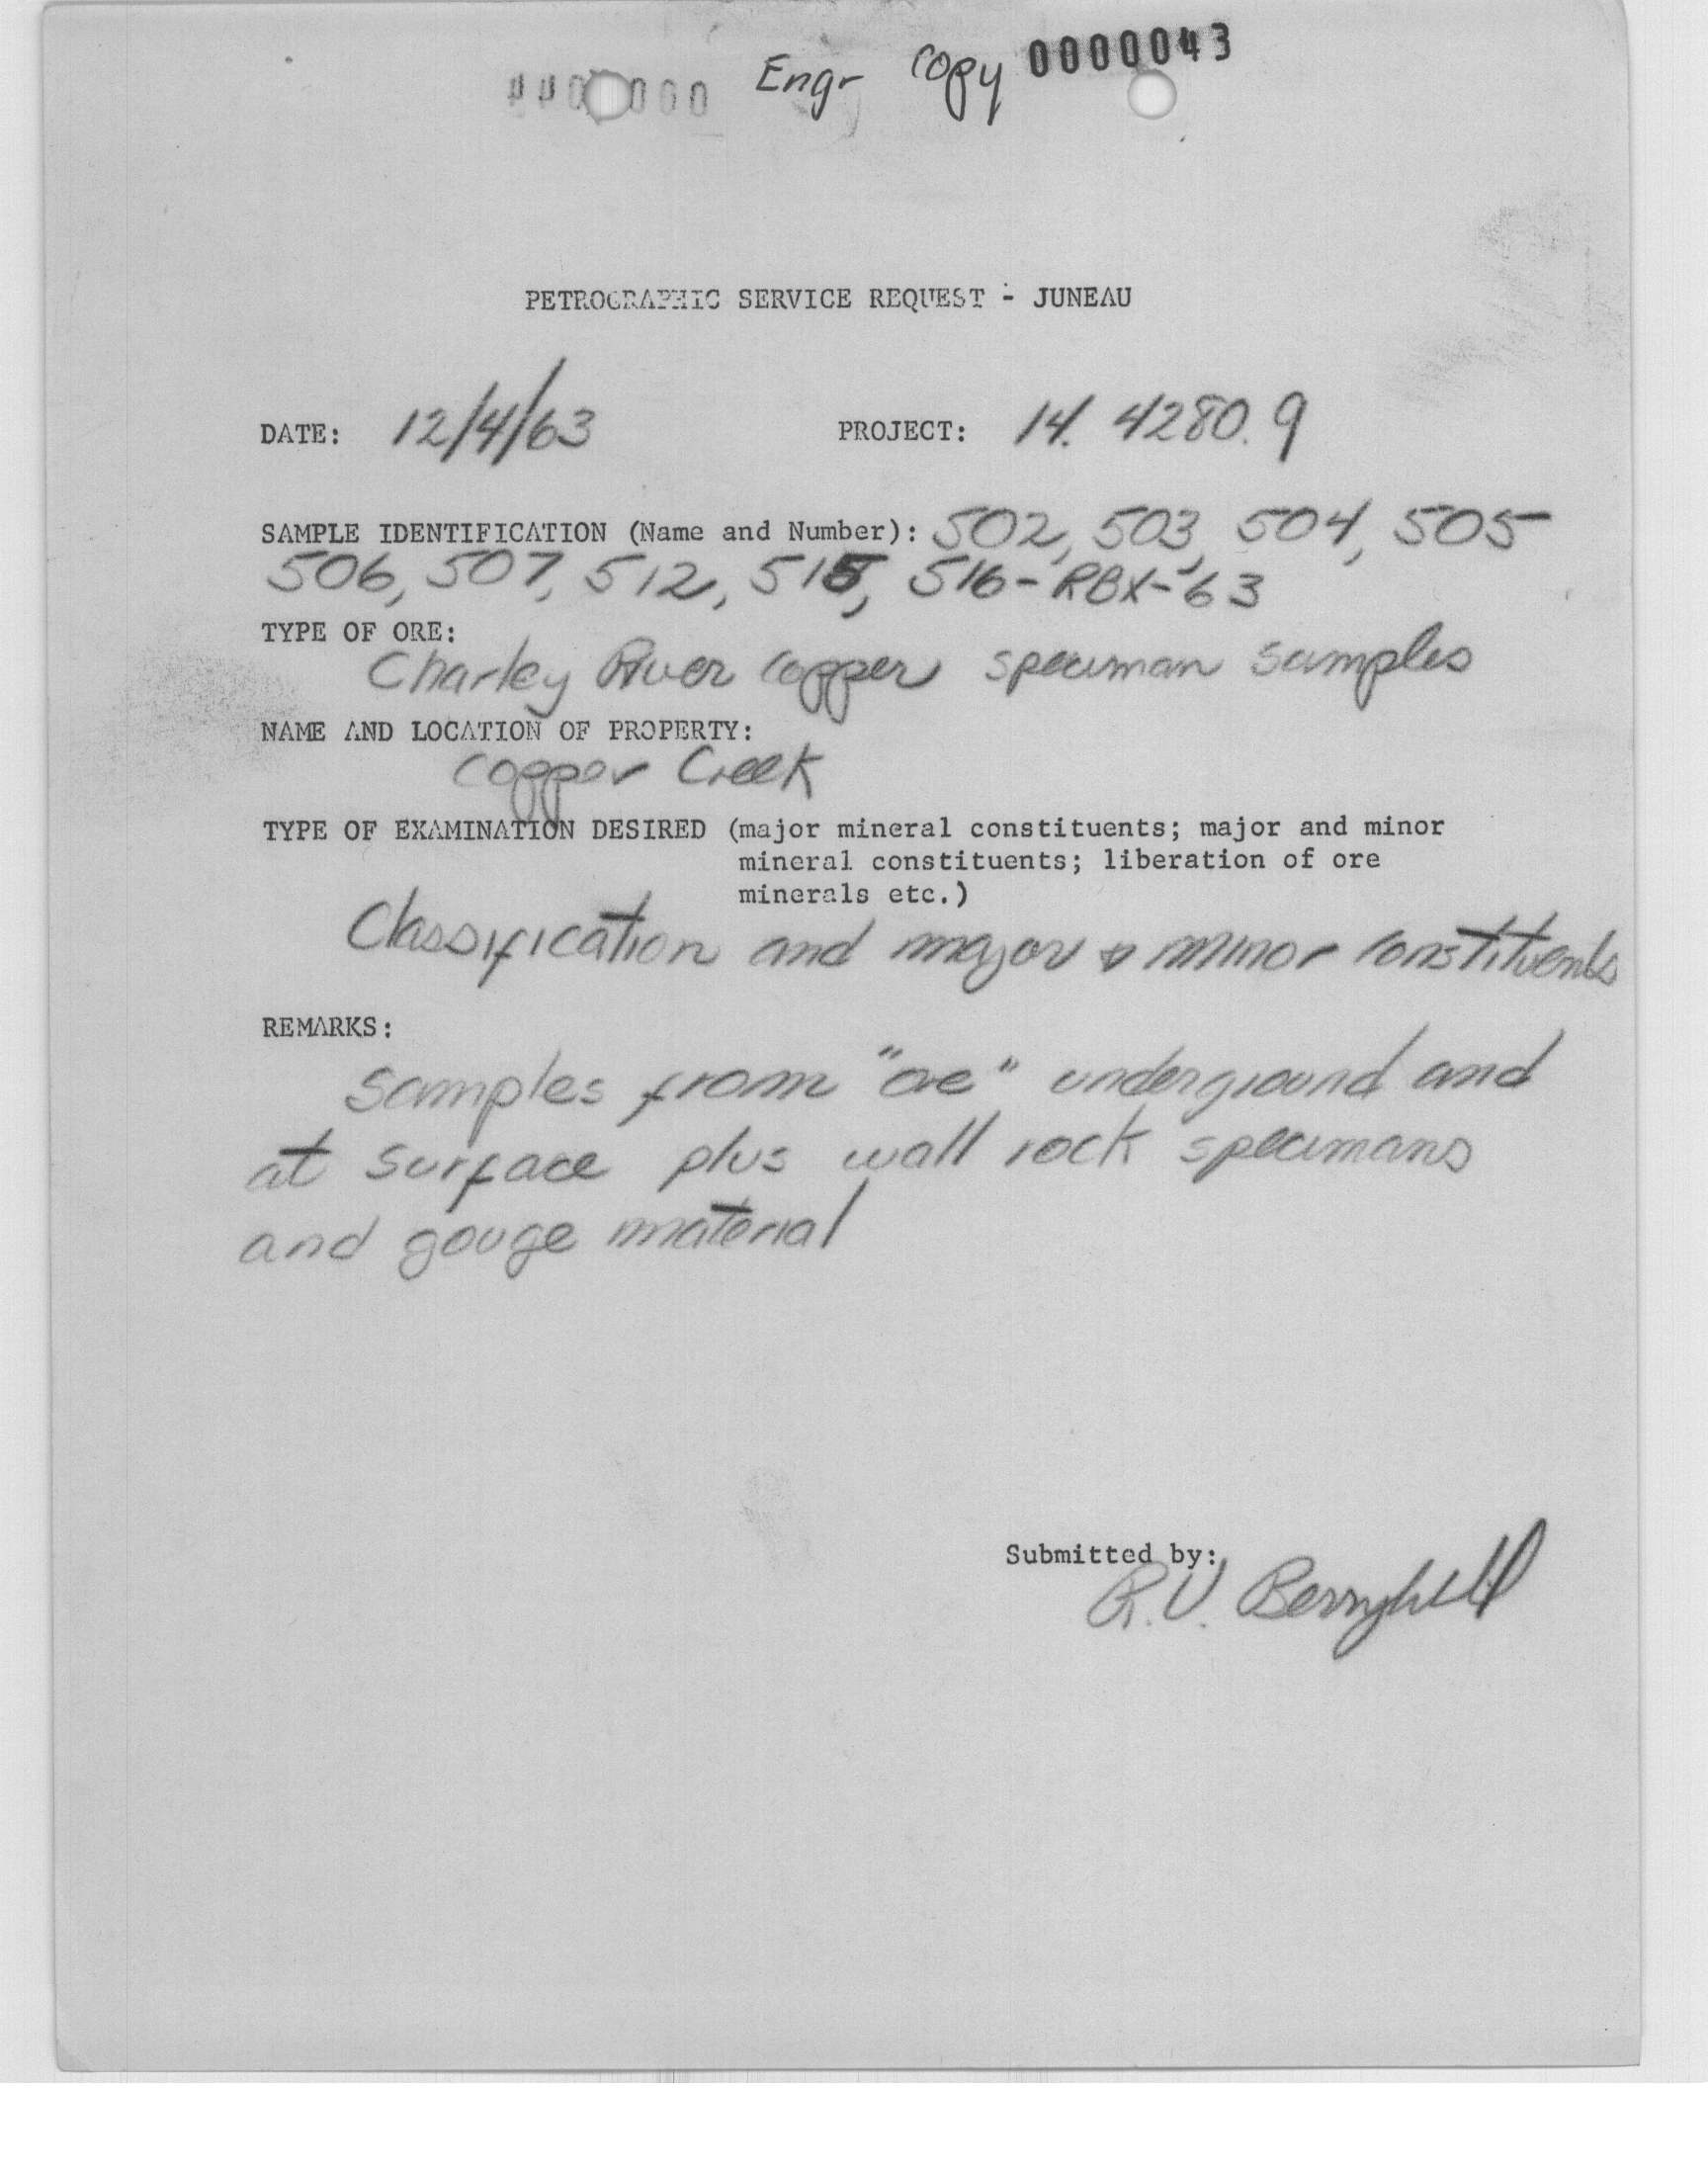 Engr Copy 0000043
PETROGRAPHIC SERVICE REQUEST - JUNEAU
DATE: 12/4/63 PROJECT: 14. 4280. 9
SAMPLE IDENTIFICATION (Name and Number): 502, 503, 504, 505
506, 507, 512, 515, 516-RBX-'63
TYPE OF ORE:
Charley River Copper speciman samples
NAME AND LOCATION OF PROPERTY:
Copper Creek
TYPE OF EXAMINATION DESIRED (major mineral constituents; major and minor
mineral constituents; liberation of ore
minerals etc.)
Classification and major & minor constituents
REMARKS:
Samples from "ore" underground and
at surface plus wall rock specimans
and gouge material
Submitted by:
R.V. Berryhill